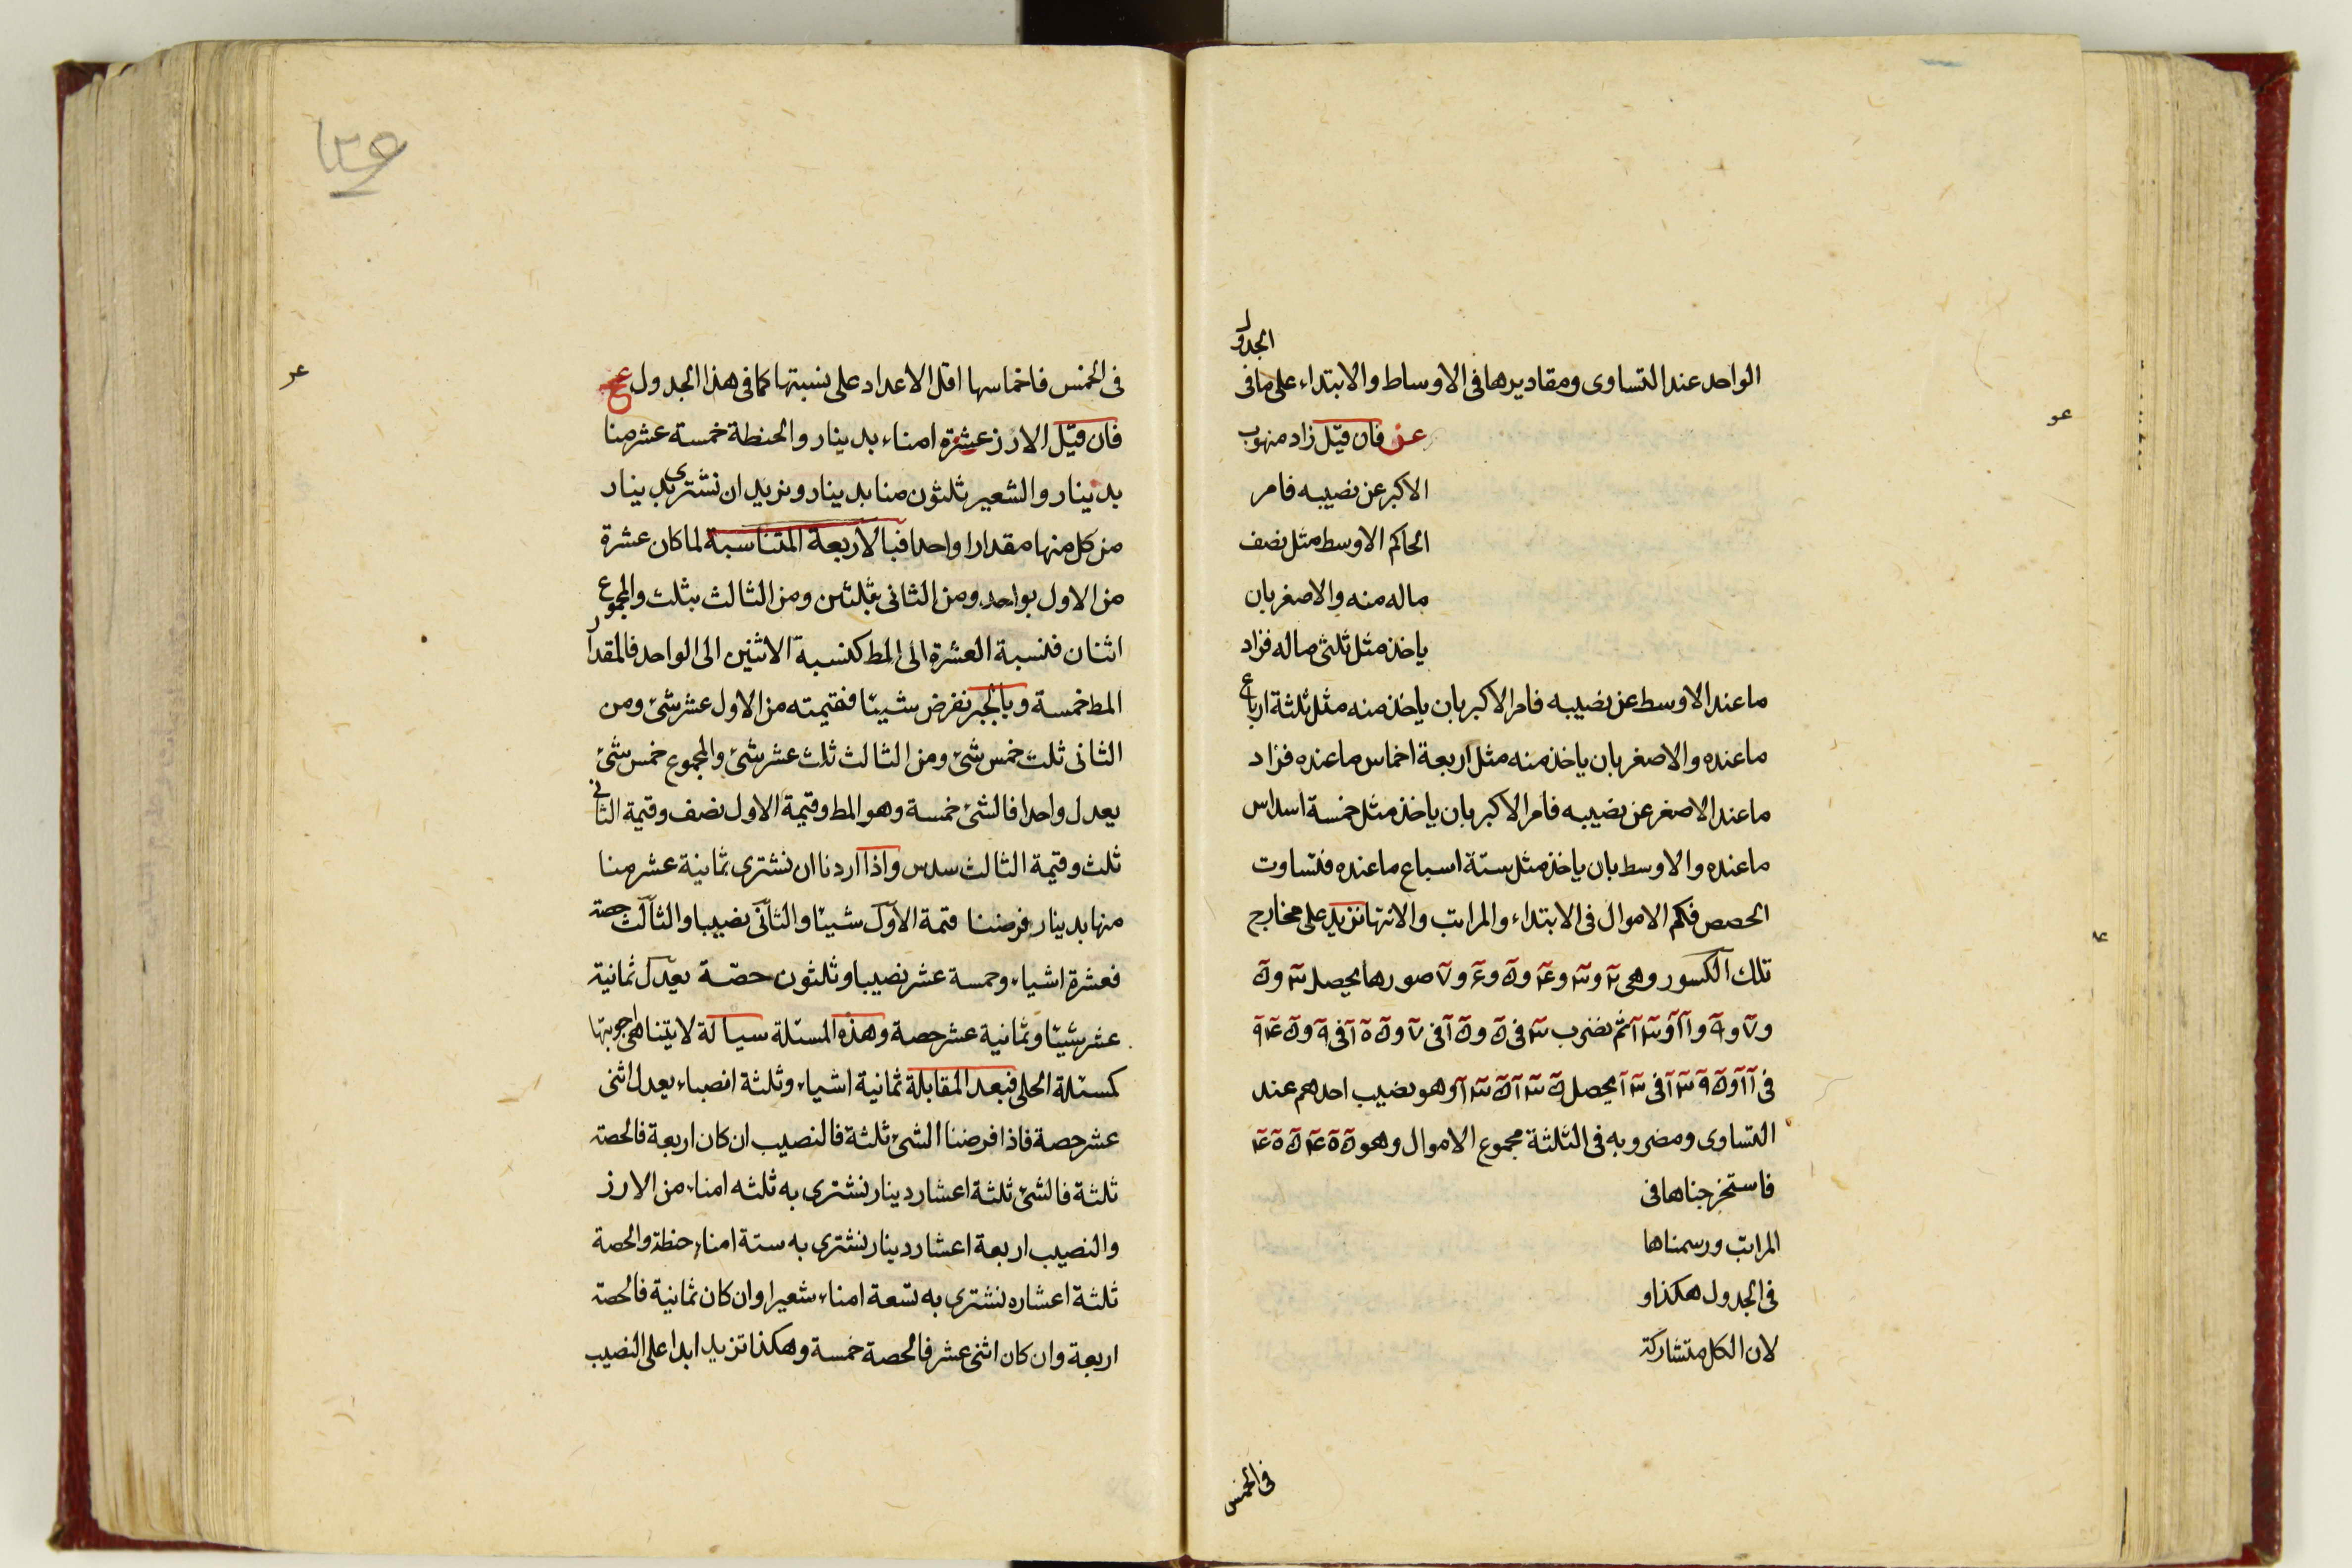 الواحد عند التساوى ومقاديرها فى الاوساط والابتداء على ما فى الجدول
عز فان قيل زاد منهوب
الاكبر عن نصيبه فامر
الحاكم الاوسط مثل نصف
ماله منه والاصغر بان
ياخذ مثل ثلثى ماله فزاد
ما عند الاوسط عن نصيبه فامر الاكبر بان ياخذ منه مثل ثلثة ارباع
ما عنده والاصغر بان ياخذ منه مثل اربعة اخماس ما عنده فزاد
ما عند الاصغر عن نصيبه فامر الاكبر بان ياخذ مثل خمسة اسداس
ما عنده والاوسط بان ياخذ مثل ستة اسباع ما عنده فتساوت
الحصص فكم الاموال فى الابتداء والمراتب والانتها نزيد على مخارج
تلك الكسور وهى ٢ و ٣ و ٤ و ٥ و ٦ و ٧ صورها يحصل ٣ و ٥
و ٧ و ٩ و ١١ و ١٣ ثم نضرب ٣ فى ٥ و ١٥ فى ٧ و ١٠٥ فى ٩ و ٩٤٥
فى ١١ و ١٠٣٩٥ فى ١٣ يحصل ١٣٥١٣٥ وهو نصيب احدهم عند
التساوى ومضروبه فى الثلثة مجموع الاموال وهو ٤٠٥٤٠٥
فاستخرجناها فى
المراتب ورسمناها
فى الجدول هكذا و
لان الكل متشاركة
فى الخمس
فى الخمس فاخماسها اقل الاعداد على نسبتها كما فى هذا الجدول عح
فان قيل الارز عشرة امناء بدينار والحنطة خمسة عشر منا
بدينار والشعير ثلثون منا بدينار ونريد ان نشترى بدينار
من كل منها مقدارا واحدا فبالاربعة المتناسبة لما كان عشرة
من الاول بواحد ومن الثانى بثلثين ومن الثالث بثلث والمجموع
اثنان فنسبة العشرة الى المط كنسبة الاثنين الى الواحد فالمقدار
المط خمسة وبالجبر نفرض شيئا فقيمته من الاول عشر شئ ومن
الثانى ثلث خمس شئ ومن الثالث ثلث عشر شئ والمجموع خمس شئ
يعدل واحدا فالشئ خمسة وهو المط وقيمة الاول نصف وقيمة الثانى
ثلث وقيمة الثالث سدس واذا اردنا ان نشترى ثمانية عشر منا
منها بدينار فرضنا قيمة الاول شيئا والثانى نصيبا والثالث حصة
فعشرة اشياء وخمسة عشر نصيبا وثلثون حصة يعدل ثمانية
عشر شيئا وثمانية عشر حصة وهذه المسئلة سيالة لا يتناهى اجوبتها
كمسئلة الحلى فبعد المقابلة ثمانية اشياء وثلثة انصباء يعدل اثنى
عشر حصة فاذا فرضنا الشئ ثلثة فالنصيب ان كان اربعة فالحصة
ثلثة فالشئ ثلثة اعشار دينار نشترى به ثلثه امناء من الارز
والنصيب اربعة اعشار دينار نشترى به ستة امناء حنطة والحصة
ثلثة اعشاره نشترى به تسعة امناء شعيرا وان كان ثمانية فالحصة
اربعة وان كان اثنى عشر فالحصة خمسة وهكذا تزيد ابدا على النصيب